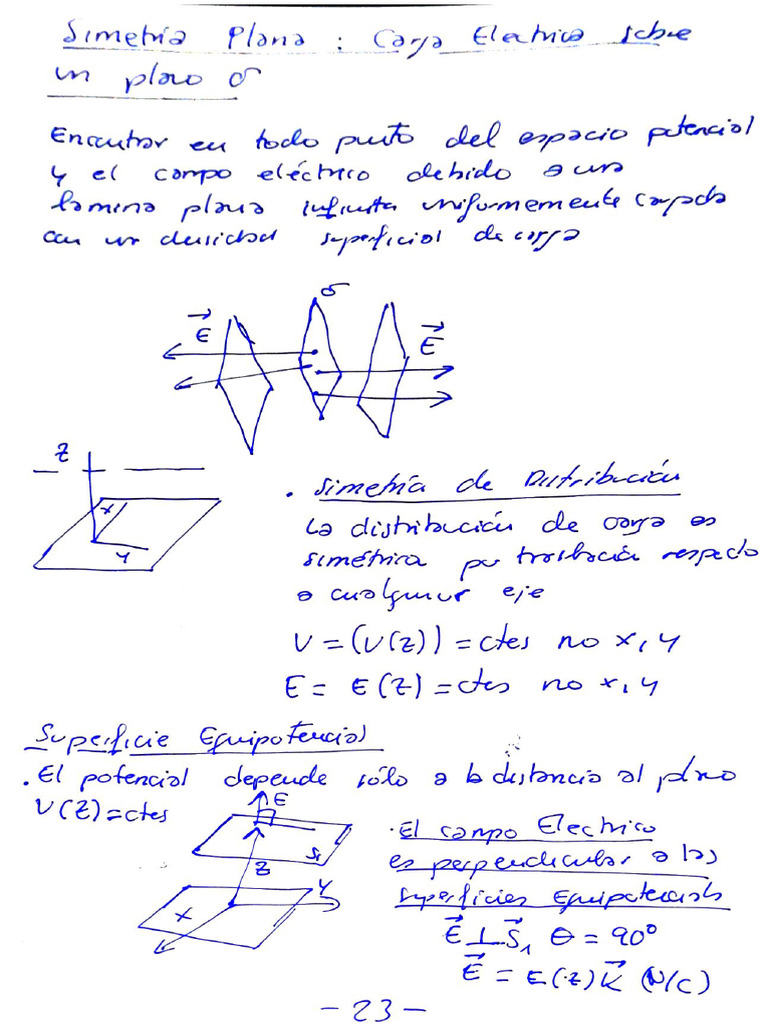 Simetría Plana : Carga Electrica sobre
un plano σ
Encontrar en todo punto del espacio potencial
y el campo eléctrico debido a una
lamina plana infinita uniformemente cargada
con un densidad superficial de carga
σ
E
E
Z
X
Y
. Simetría de Distribución
La distribución de carga es
simétrica por traslación respecto
a cualquier eje
V = (V(Z)) = ctes no x, y
E = E(Z) = ctes no x, y
Superficie Equipotencial
. El potencial depende sólo a la distancia al plano
V(Z) = ctes
E
S₁
Z
Y
X
. El campo Electrico
es perpendicular a las
superficies Equipotenciales
E⃗ ⊥ S⃗₁ θ = 90°
E⃗ = E(Z) K⃗ (N/C)
- 23 -